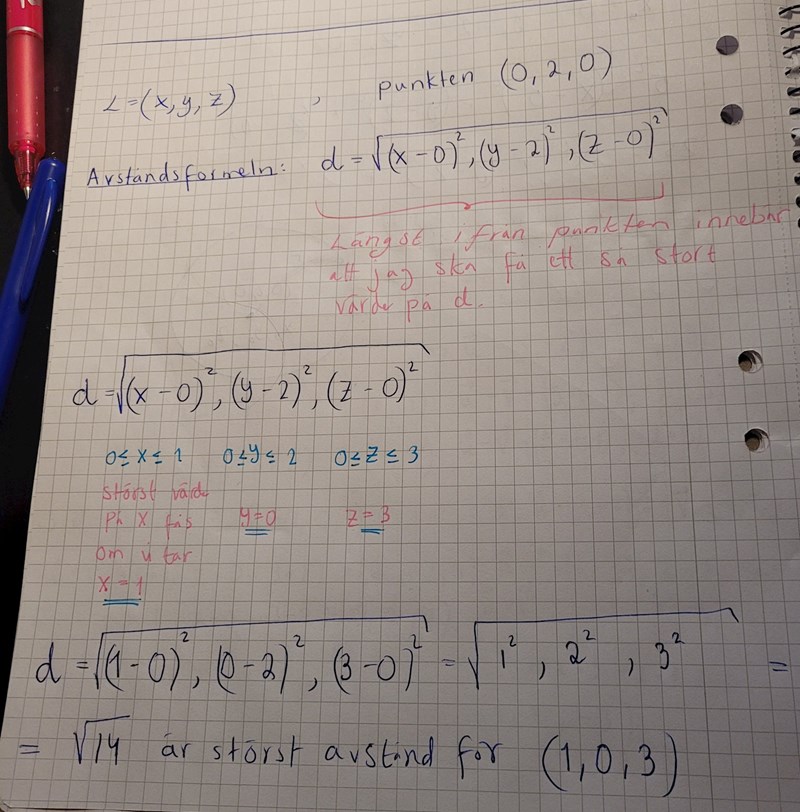 L=(x,y,z) , punkten (0,2,0)
Avståndsformeln: d = √(x-0)², (y-2)², (z-0)²
Längst ifrån punkten innebär
att jag ska få ett så stort
värde på d.
d = √(x-0)², (y-2)², (z-0)²
0≤x≤1 0≤y≤2 0≤z≤3
störst värde
på x fås y=0 z=3
om vi tar
x=1
d = √(1-0)², (0-2)², (3-0)² = √1², 2², 3² =
= √14 är störst avstånd för (1,0,3)